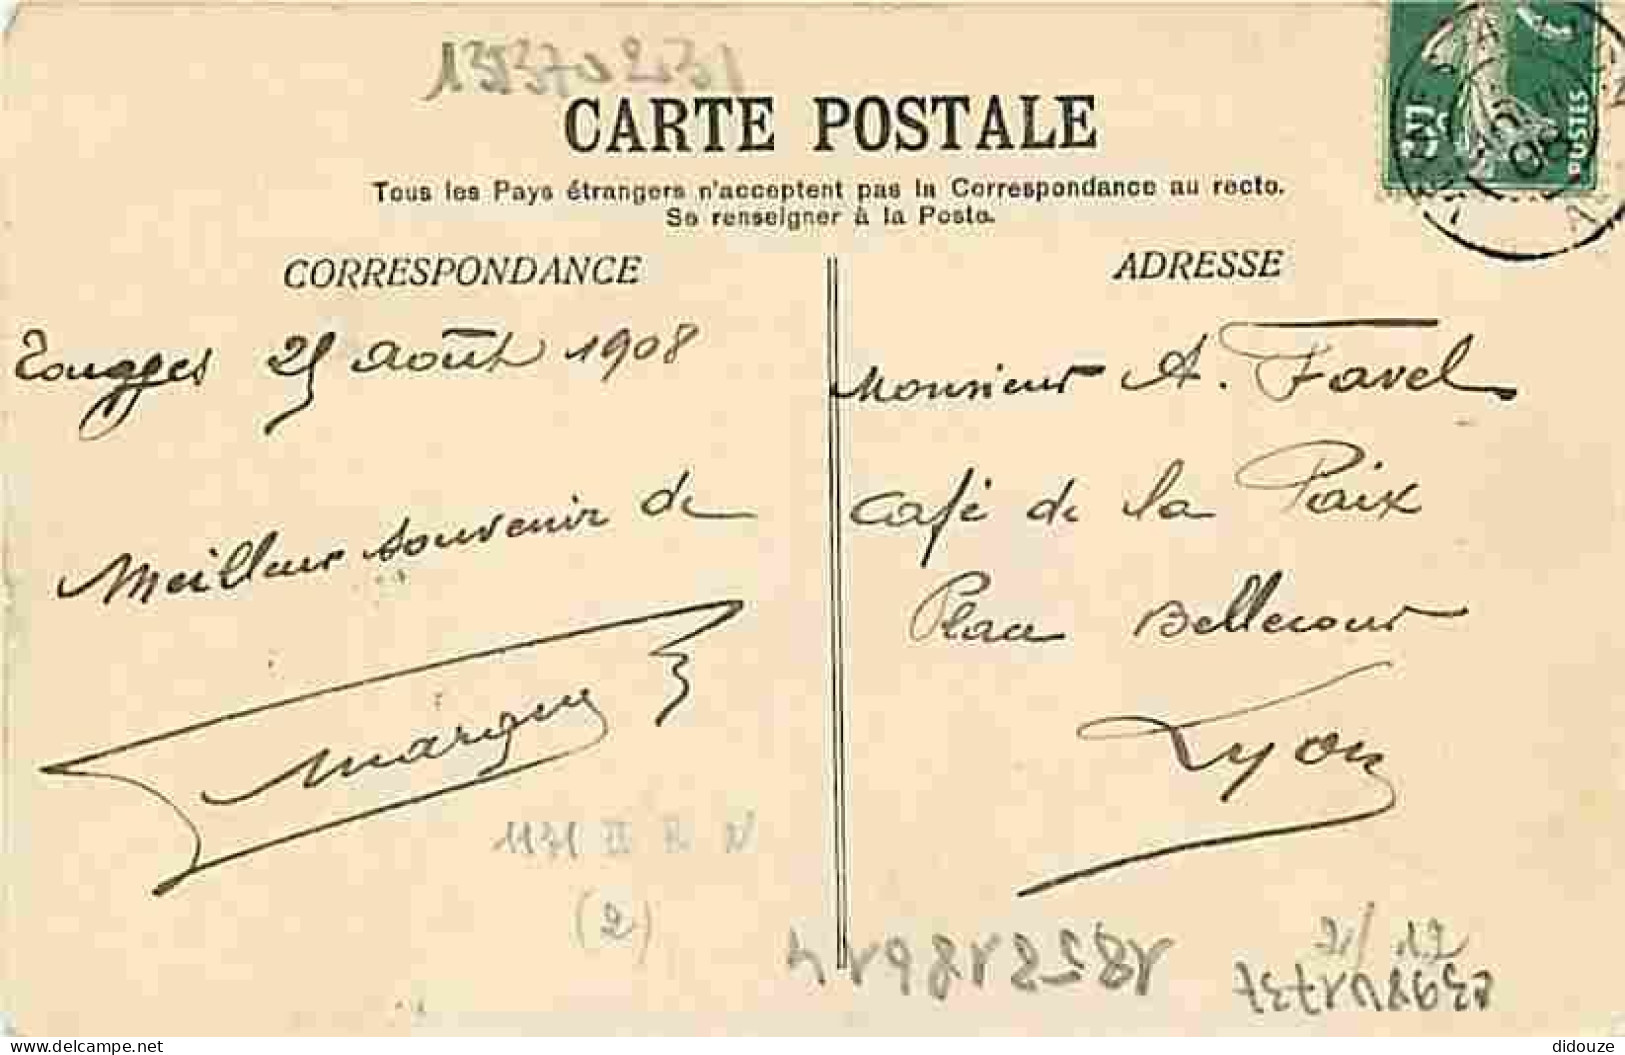 CARTE POSTALE
Tous les Pays étrangers n'acceptent pas la Correspondance au recto.
Se renseigner à la Poste.
CORRESPONDANCE
ADRESSE
25 août 1908
Meilleur souvenir de
Monsieur A. Favel
Café de la Paix
Place Bellecour
Lyon
POSTES
1131 II R N
(2)
delcampe.net
didouze